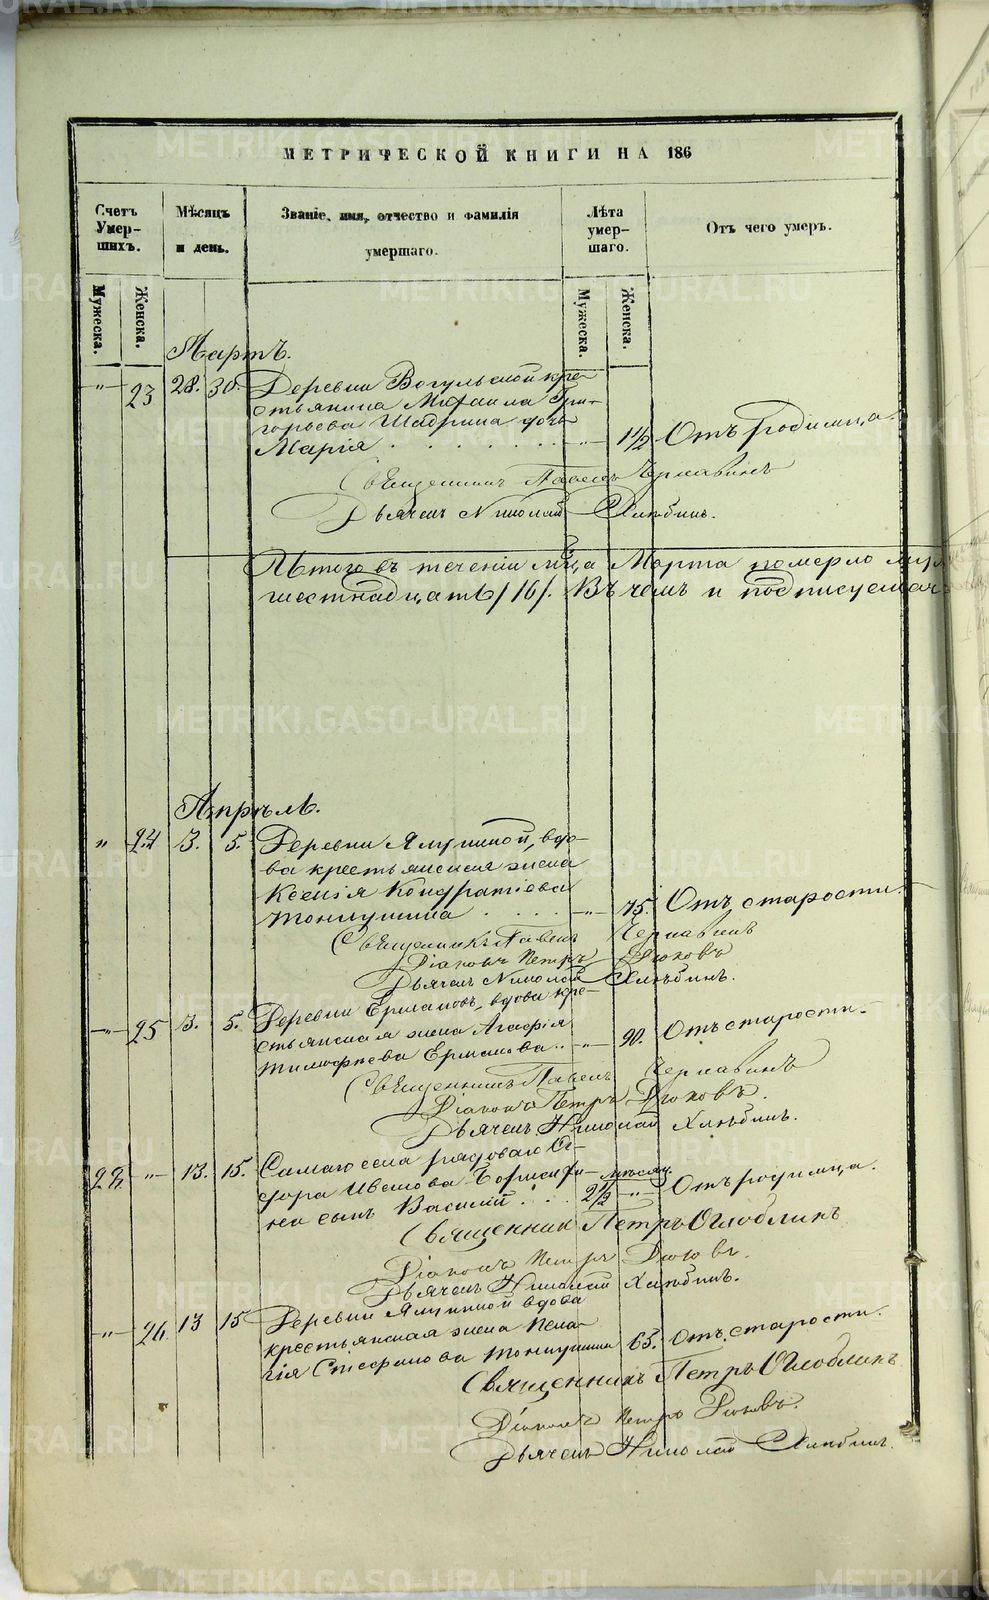 МЕТРИЧЕСКОЙ КНИГИ НА 186
Счетъ Умер-шихъ.
Мѣсяцъ и день.
Званіе, имя, отчество и фамилія умершаго.
Лѣта умер-шаго.
Отъ чего умеръ.
Мужеска.
Женска.
Мужеска.
Женска.
Мартъ.
-"- 23 28. 30. Деревни Вогульской кре-
стьянина Михаила Гри-
горьева Шадрина дочь
Марія -"- 1 1/2 Отъ родимца.
Священникъ Павелъ Чернавинъ
Дьячекъ Николай Хлѣбинъ.
Итого въ теченіи м-ца Марта померло
шестнадцать /16/. Въ чемъ и подписуемся
Апрѣль.
" 24 3. 5. Деревни Ялуниной, вдо-
ва крестьянская жена
Ксенія Кондратіева
-"- 75. Отъ старости.
Священникъ Павелъ Чернавинъ
Діаконъ Петръ
Дьячекъ Николай Хлѣбинъ.
-"- 25 3. 5. Деревни Ермаковъ, вдова кре-
стьянская жена Агафія
Тимофеева Ермакова.. -"- 90. Отъ старости.
Священникъ Павелъ Чернавинъ
Діаконъ Петръ
Дьячекъ Николай Хлѣбинъ.
22. -"- 13. 15. Самаго села рядоваго
сынъ Василій 2 1/2 мѣсяц. -"- Отъ родимца.
Священникъ Петръ Оглоблинъ
Діаконъ Петръ
Дьячекъ Николай Хлѣбинъ.
-"- 26 13 15 Деревни Ялуниной вдова
крестьянская жена Пела-
гія Стефанова 65. Отъ старости.
Священникъ Петръ Оглоблинъ
Діаконъ Петръ
Дьячекъ Николай Хлѣбинъ.
METRIKI.GASO-URAL.RU